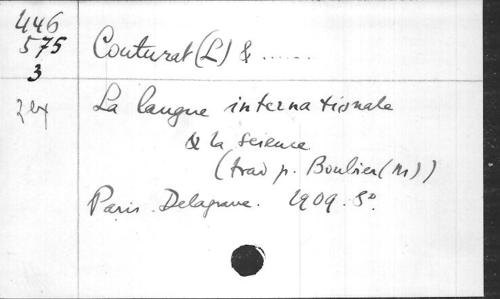 446
575
3
2 ex
Couturat (L) & ......
La langue internationale
& la science
(trad p. Boubier (M))
Paris. Delagrave. 1909. 8º